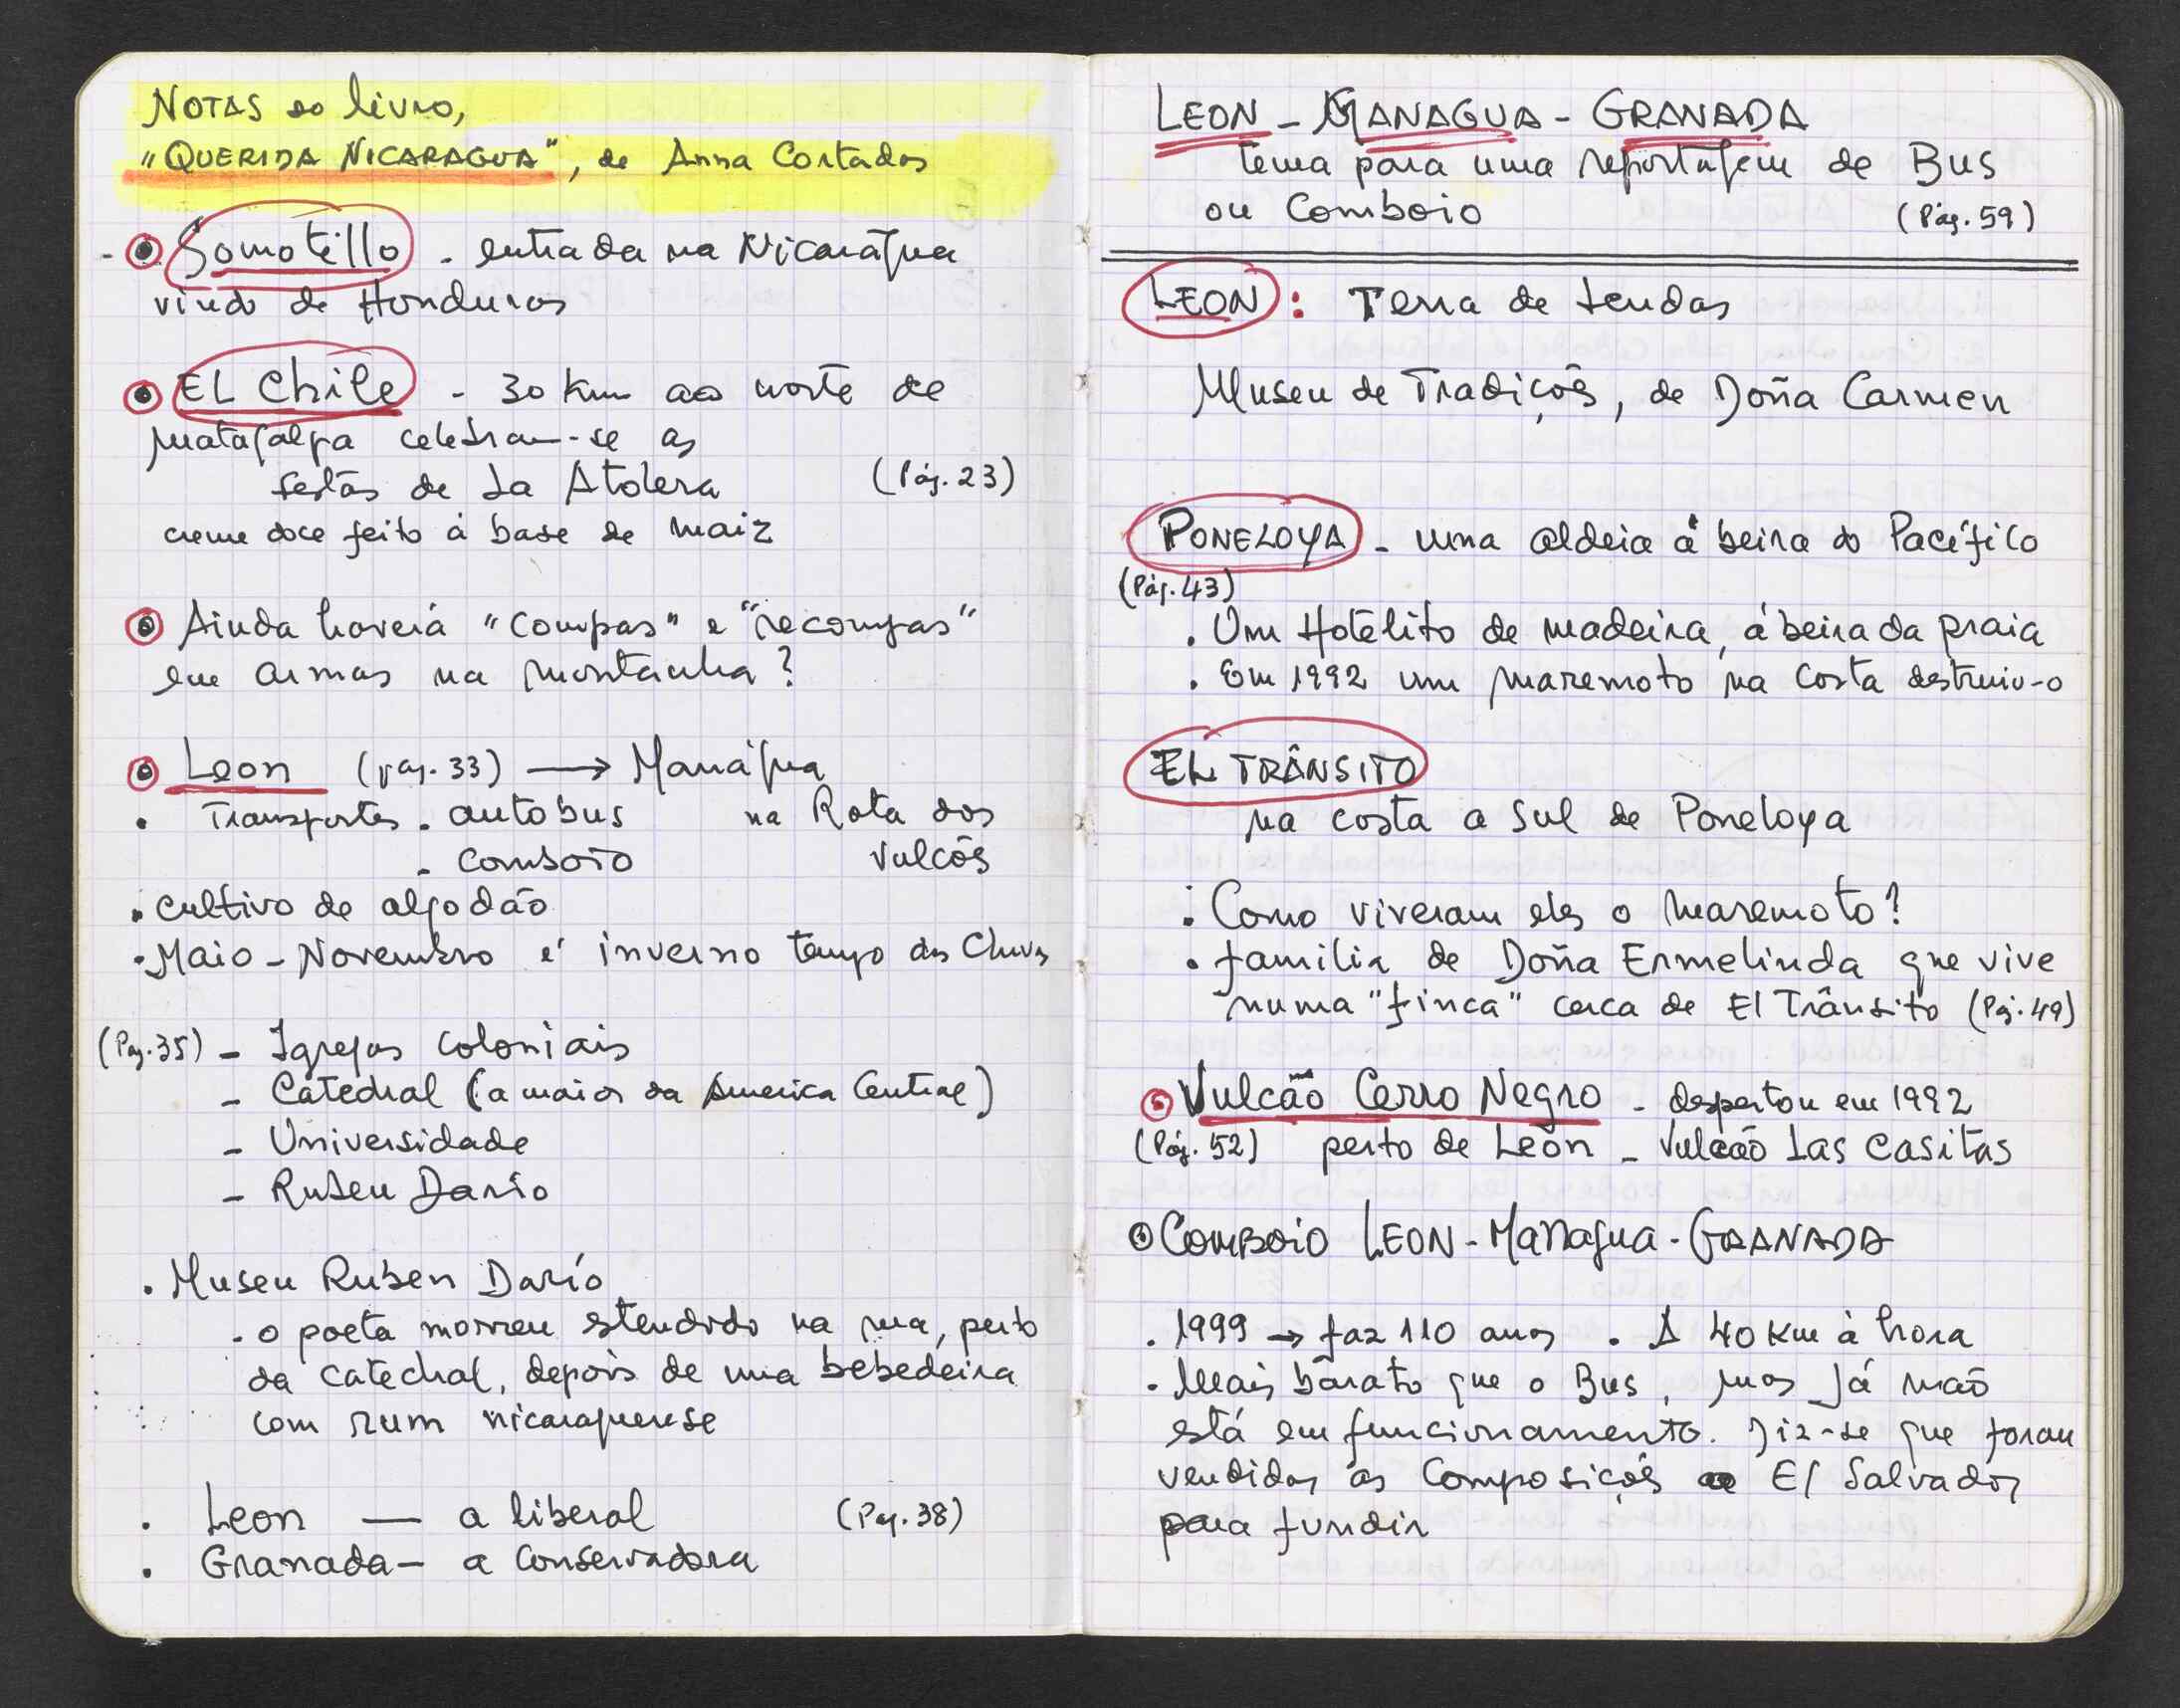 NOTAS do livro,
"QUERIDA NICARAGUA", de Anna Cortadas
- Somotillo - entrada na Nicarágua
vindo de Honduras
EL Chile - 30 Km ao norte de
Matagalpa celebram-se as
festas de La Atolera (Pág. 23)
creme doce feito á base de maiz
Ainda haverá "compas" e "recompas"
em armas na montanha?
Leon (pag. 33) → Manágua
• Transportes - autobus na Rota dos
- comboio Vulcões
• cultivo de algodão
• Maio - Novembro é inverno tempo das Chuvas
(Pag. 35) - Igrejas coloniais
- Catedral (a maior da America Central)
- Universidade
- Ruben Dario
• Museu Ruben Darío
- o poeta morreu estendido na rua, perto
da catedral, depois de uma bebedeira
com rum nicaraguense
• Leon — a liberal (Pag. 38)
• Granada — a conservadora
LEON - MANAGUA - GRANADA
tema para uma reportagem de Bus
ou Comboio (Pág. 59)
LEON: Terra de lendas
Museu de Tradições, de Doña Carmen
PONELOYA - uma aldeia á beira do Pacífico
(Pág. 43)
• Um Hotelito de madeira, á beira da praia
• Em 1992 um maremoto na costa destruiu-o
EL TRÂNSITO
na costa a sul de Poneloya
• Como viveram eles o maremoto?
• família de Doña Ermelinda que vive
numa "finca" cerca de El Trânsito (Pág. 49)
Vulcão Cerro Negro - despertou em 1992
(Pág. 52) perto de León - Vulcão Las Casitas
COMBOIO LEON - Managua - GRANADA
• 1999 → faz 110 anos • A 40 Km à hora
• Mais barato que o Bus, mas já não
está em funcionamento. Diz-se que foram
vendidas as Composições a El Salvador
para fundir